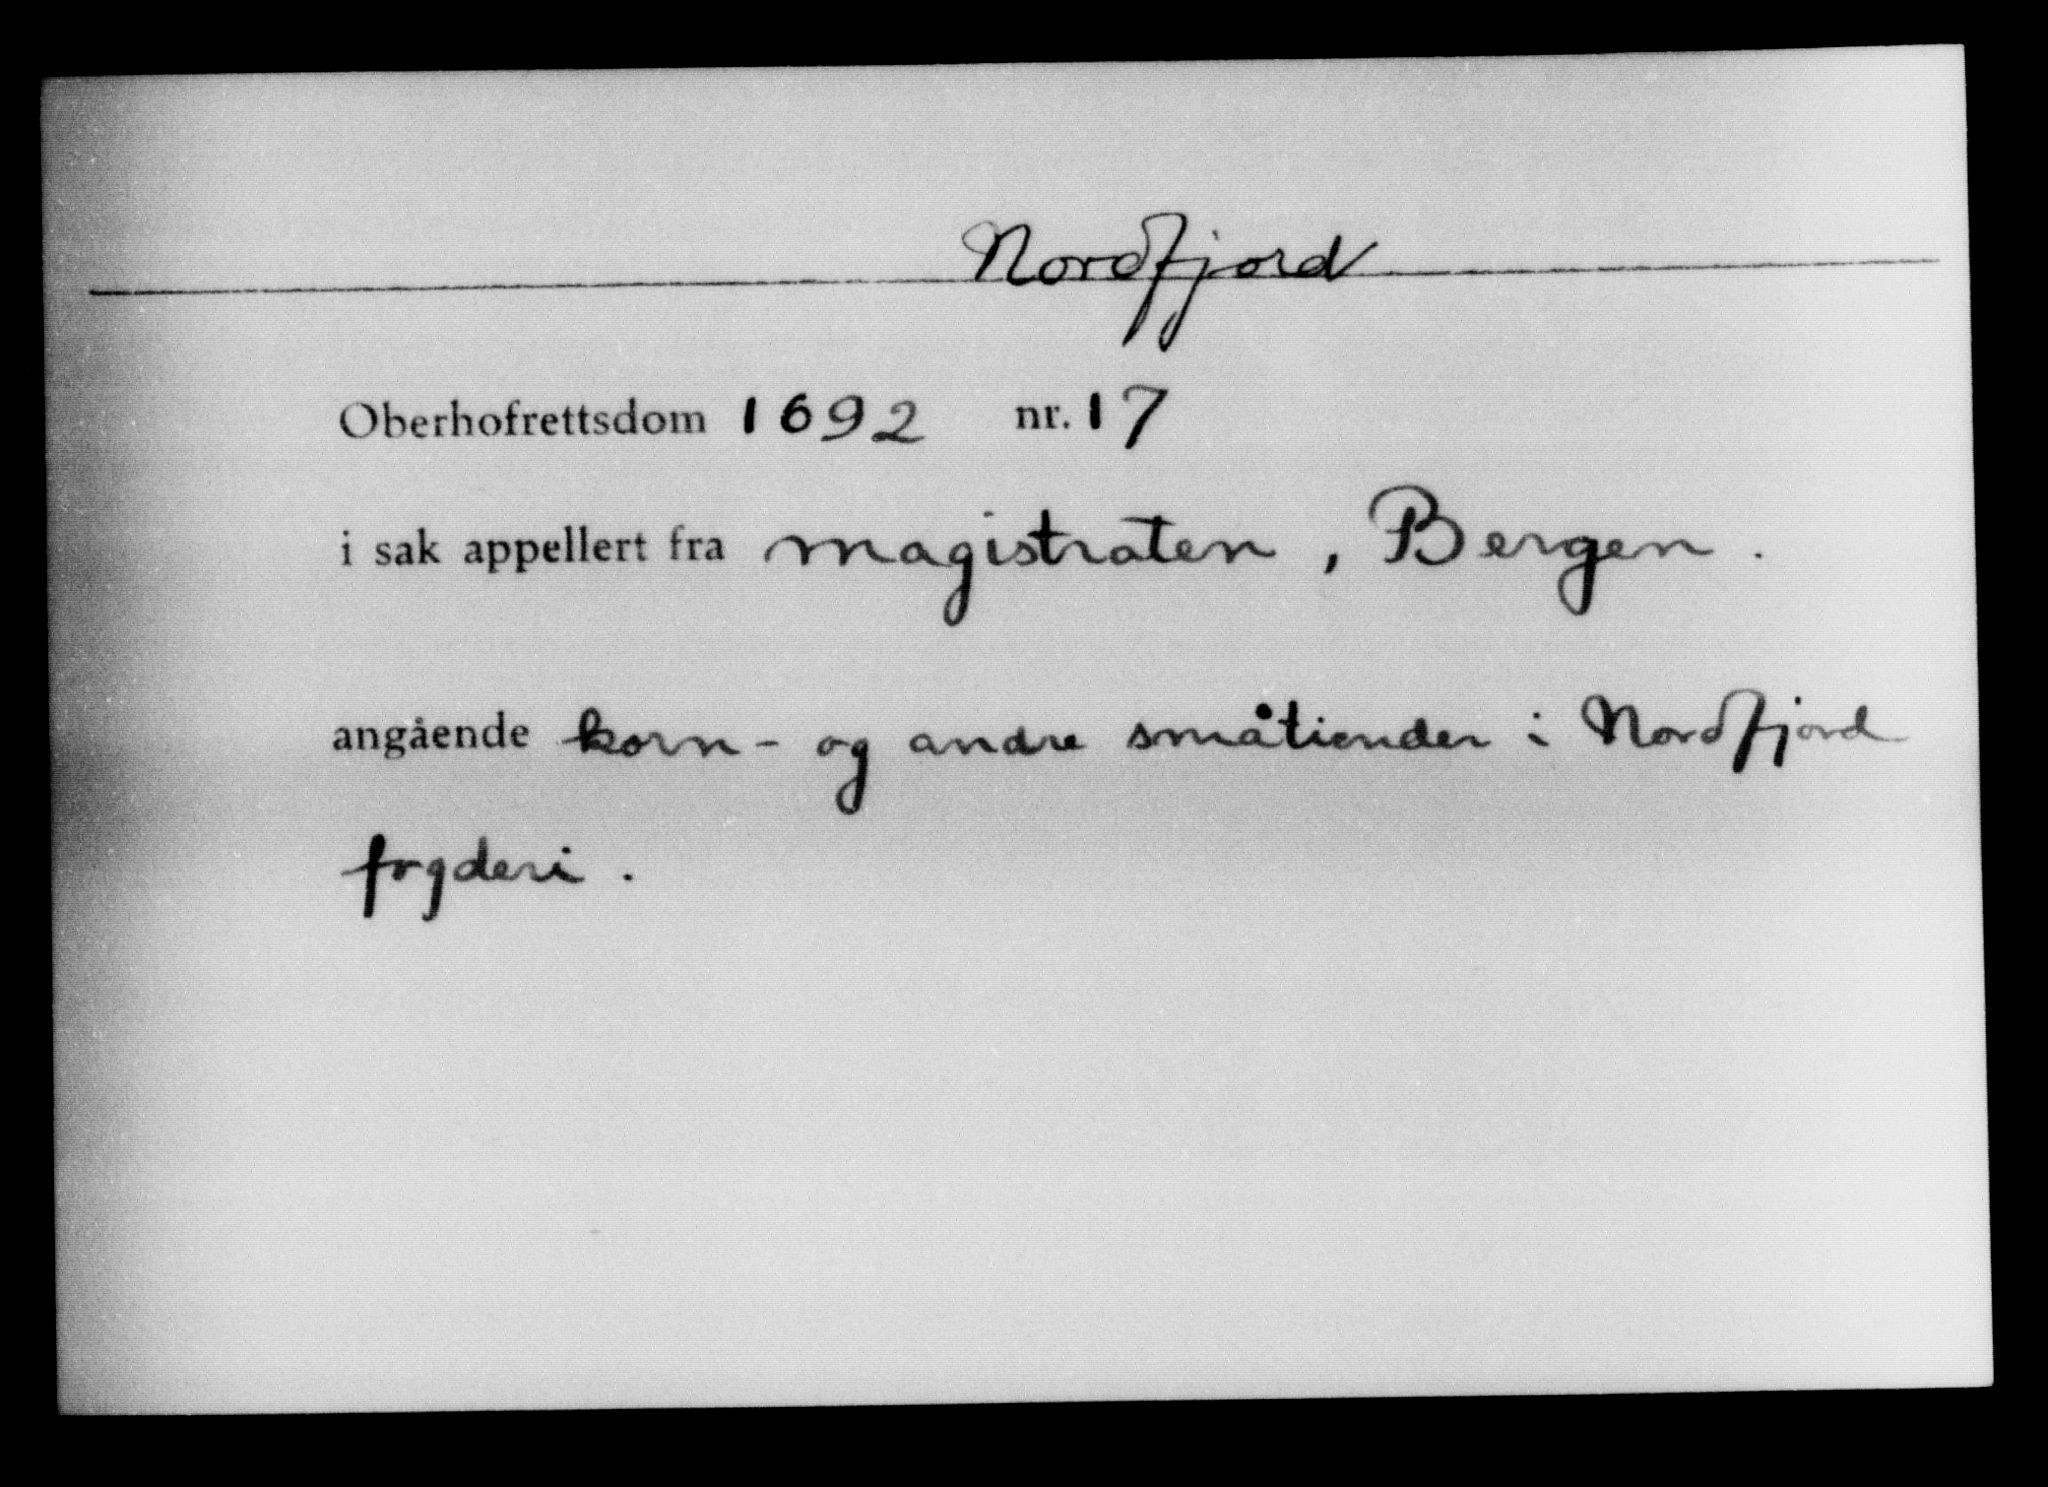 Nordfjord
Oberhofrettsdom 1692 nr. 17
i sak appellert fra magistraten, Bergen.
angående korn- og andre småtiender i Nordfjord
fogderi.